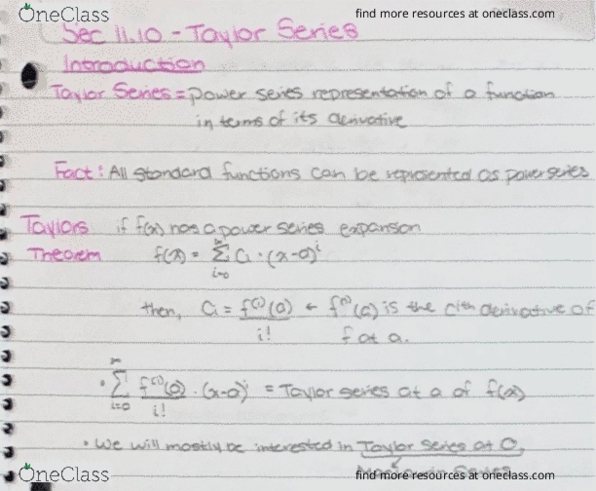 OneClass find more resources at oneclass.com
Sec 11.10 - Taylor Series
Introduction
Taylor Series = power series representation of a function
in terms of its derivative
Fact: All standard functions can be represented as power series
Taylors if f(x) has a power series expansion
Theorem f(x) = ∞ Σ i=0 Ci · (x-a)^i
then, Ci = f^(i)(a) / i! ← f^(i)(a) is the ith derivative of
f at a.
• ∞ Σ i=0 f^(i)(a) / i! · (x-a)^i = Taylor series at a of f(x)
• We will mostly be interested in Taylor Series at 0,
Maclaurin Series
OneClass find more resources at oneclass.com